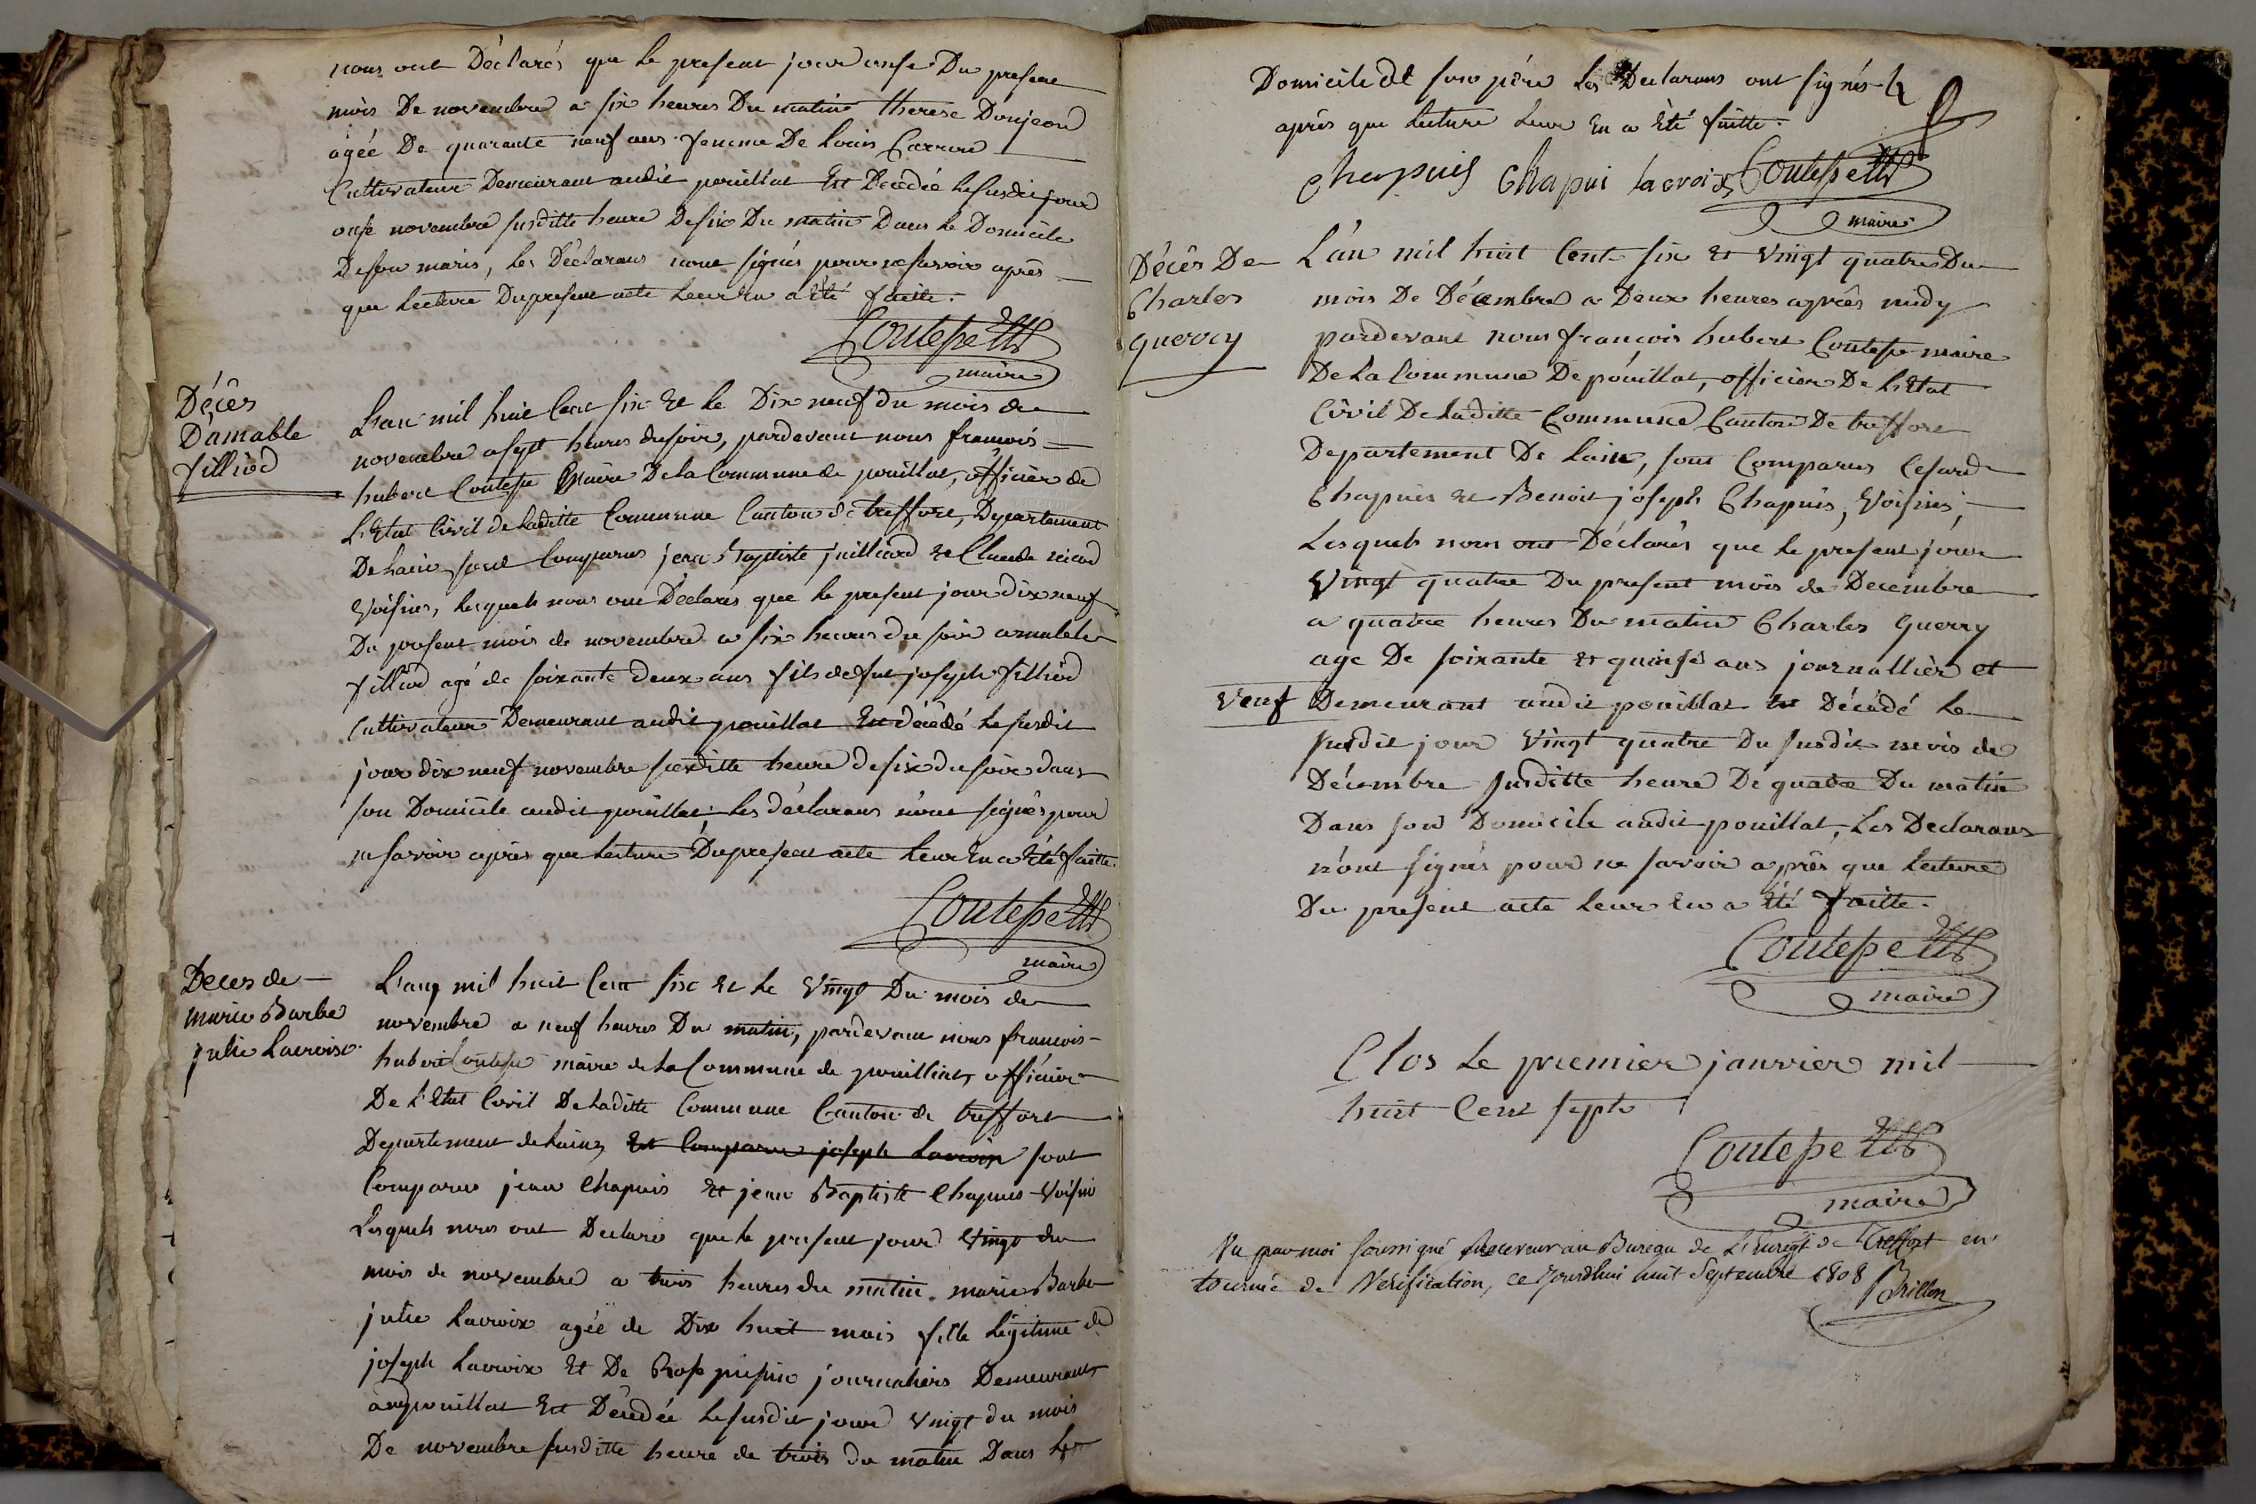 nous ont Déclarés que le present jour onse Du present
mois De novembre a six heures Du matin therese Donjeon
agéé De quarante neuf ans femme De Louis Carron
Cultivateur Demeurant audit poüillat Est Decedéé le susdit jour
onse novembre susditte heure De six Du matin Dans le Domicile
De son maris, les Déclarans nont signés pour ne savoir aprés
que lecture Du present acte leur En a Eté faitte.
Coutepe
maire
Décês
D'amable
filliod
L'an mil huit Cent six Et le Dix neuf du mois de
novembre a sept heures du soir, pardevant nous françois
hubert Coutepe Maire De la Commune de pouillat, officier de
L'Etat Civil de laditte Commune Canton de treffort, Departement
De Lain, sont Comparus jean Baptiste juilliard et Claude
Voisins, lesquels nous ont Déclarés que le present jour dix neuf
Du present mois de novembre a six heures du soir amable
filliod agé de soixante deux ans fils de fut joseph filliod
Cultivateur Demeurant audit pouillat Est décédé le susdit
jour dix neuf novembre susditte heure de six du soir dans
son Domicile audit poüillat; les déclarans n'ont signés pour
ne savoir aprés que lecture Du present acte leur En a Eté faitte.
Coutepe
maire
Deces de
marie Barbe
julie Lacroix.
L'an mil huit Cent six Et le Vingt Du mois de
novembre a neuf heures Du matin, pardevant nous francois
hubert Coutepe maire de la Commune de pouillat, officier
De L'Etat Civil De laditte Commune Canton de treffort
Departement de Lain, Est Comparu joseph Lacroix sont
Comparus jean Chapuis Et jean Baptiste Chapuis Voisin
Lesquels nous ont Declaré que le present jour Vingt du
mois de novembre a trois heures du matin marie Barbe
julie Lacroix agéé de Dix huit mois fille legitime de
joseph Lacroix Et De Rose journaliers Demeurants
audit pouillat Est Décédéé le susdit jour Vingt du mois
De novembre susditte heure de trois du matin Dans le
Domicile de son pére Les Declarans ont signés
aprés que lecture leur En a Eté faitte.
Chapuis Chapui lacroix Coutepe
maire
Décês De
Charles
querry
L'an mil huit Cent six Et Vingt quatre Du
mois De Décembre a Deux heures aprés midy
pardevant nous françois hubert Coutepe maire
De la Commune De póuillat, officier De L'Etat
Civil De laditte Commune Canton De treffort
Departement De Lain, sont Comparus Cesard
Chapuis et Benoit joseph Chapuis, Voisins,
Lesquels nous ont Déclarés que le present jour
Vingt quatre Du present mois de Decembre
a quatre heures Du matin Charles querry
age De soixante Et quinse ans journallièr et
veuf Demeurant audit pouillat Est Décédé le
susdit jour Vingt quatre Du susdit mois de
Décembre susditte heure De quatre Du matin
Dans son Domicile audit pouillat, Les Declarans
n'ont signés pour ne savoir aprés que lecture
Du present acte leur En a Eté faitte.
Coutepe
maire
Clos le premier janvier mil
huit Cent sept
Coutepe
maire
Vu par moi soussigné Receveur au Bureau de L'Enregt de Treffort en
tournée de Vérification, ce jourdhui huit Septembre 1808
Brillon